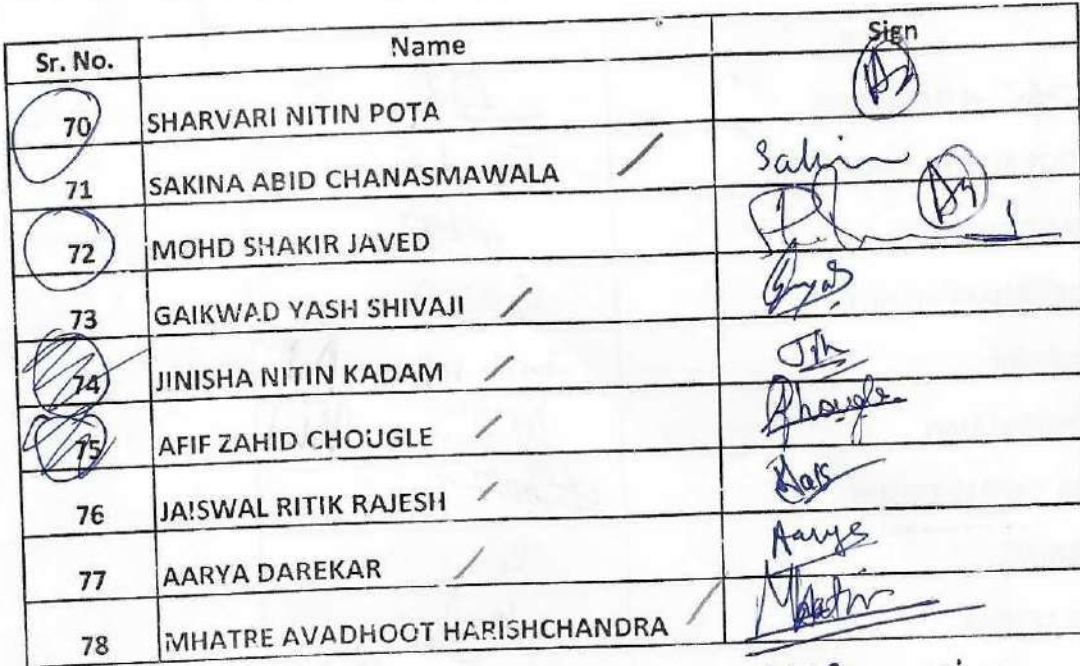 Sr. No. Name Sign
70 SHARVARI NITIN POTA
71 SAKINA ABID CHANASMAWALA Sakina
72 MOHD SHAKIR JAVED
73 GAIKWAD YASH SHIVAJI
74 JINISHA NITIN KADAM
75 AFIF ZAHID CHOUGLE Chougle
76 JAISWAL RITIK RAJESH
77 AARYA DAREKAR Aarya
78 MHATRE AVADHOOT HARISHCHANDRA Mhatre